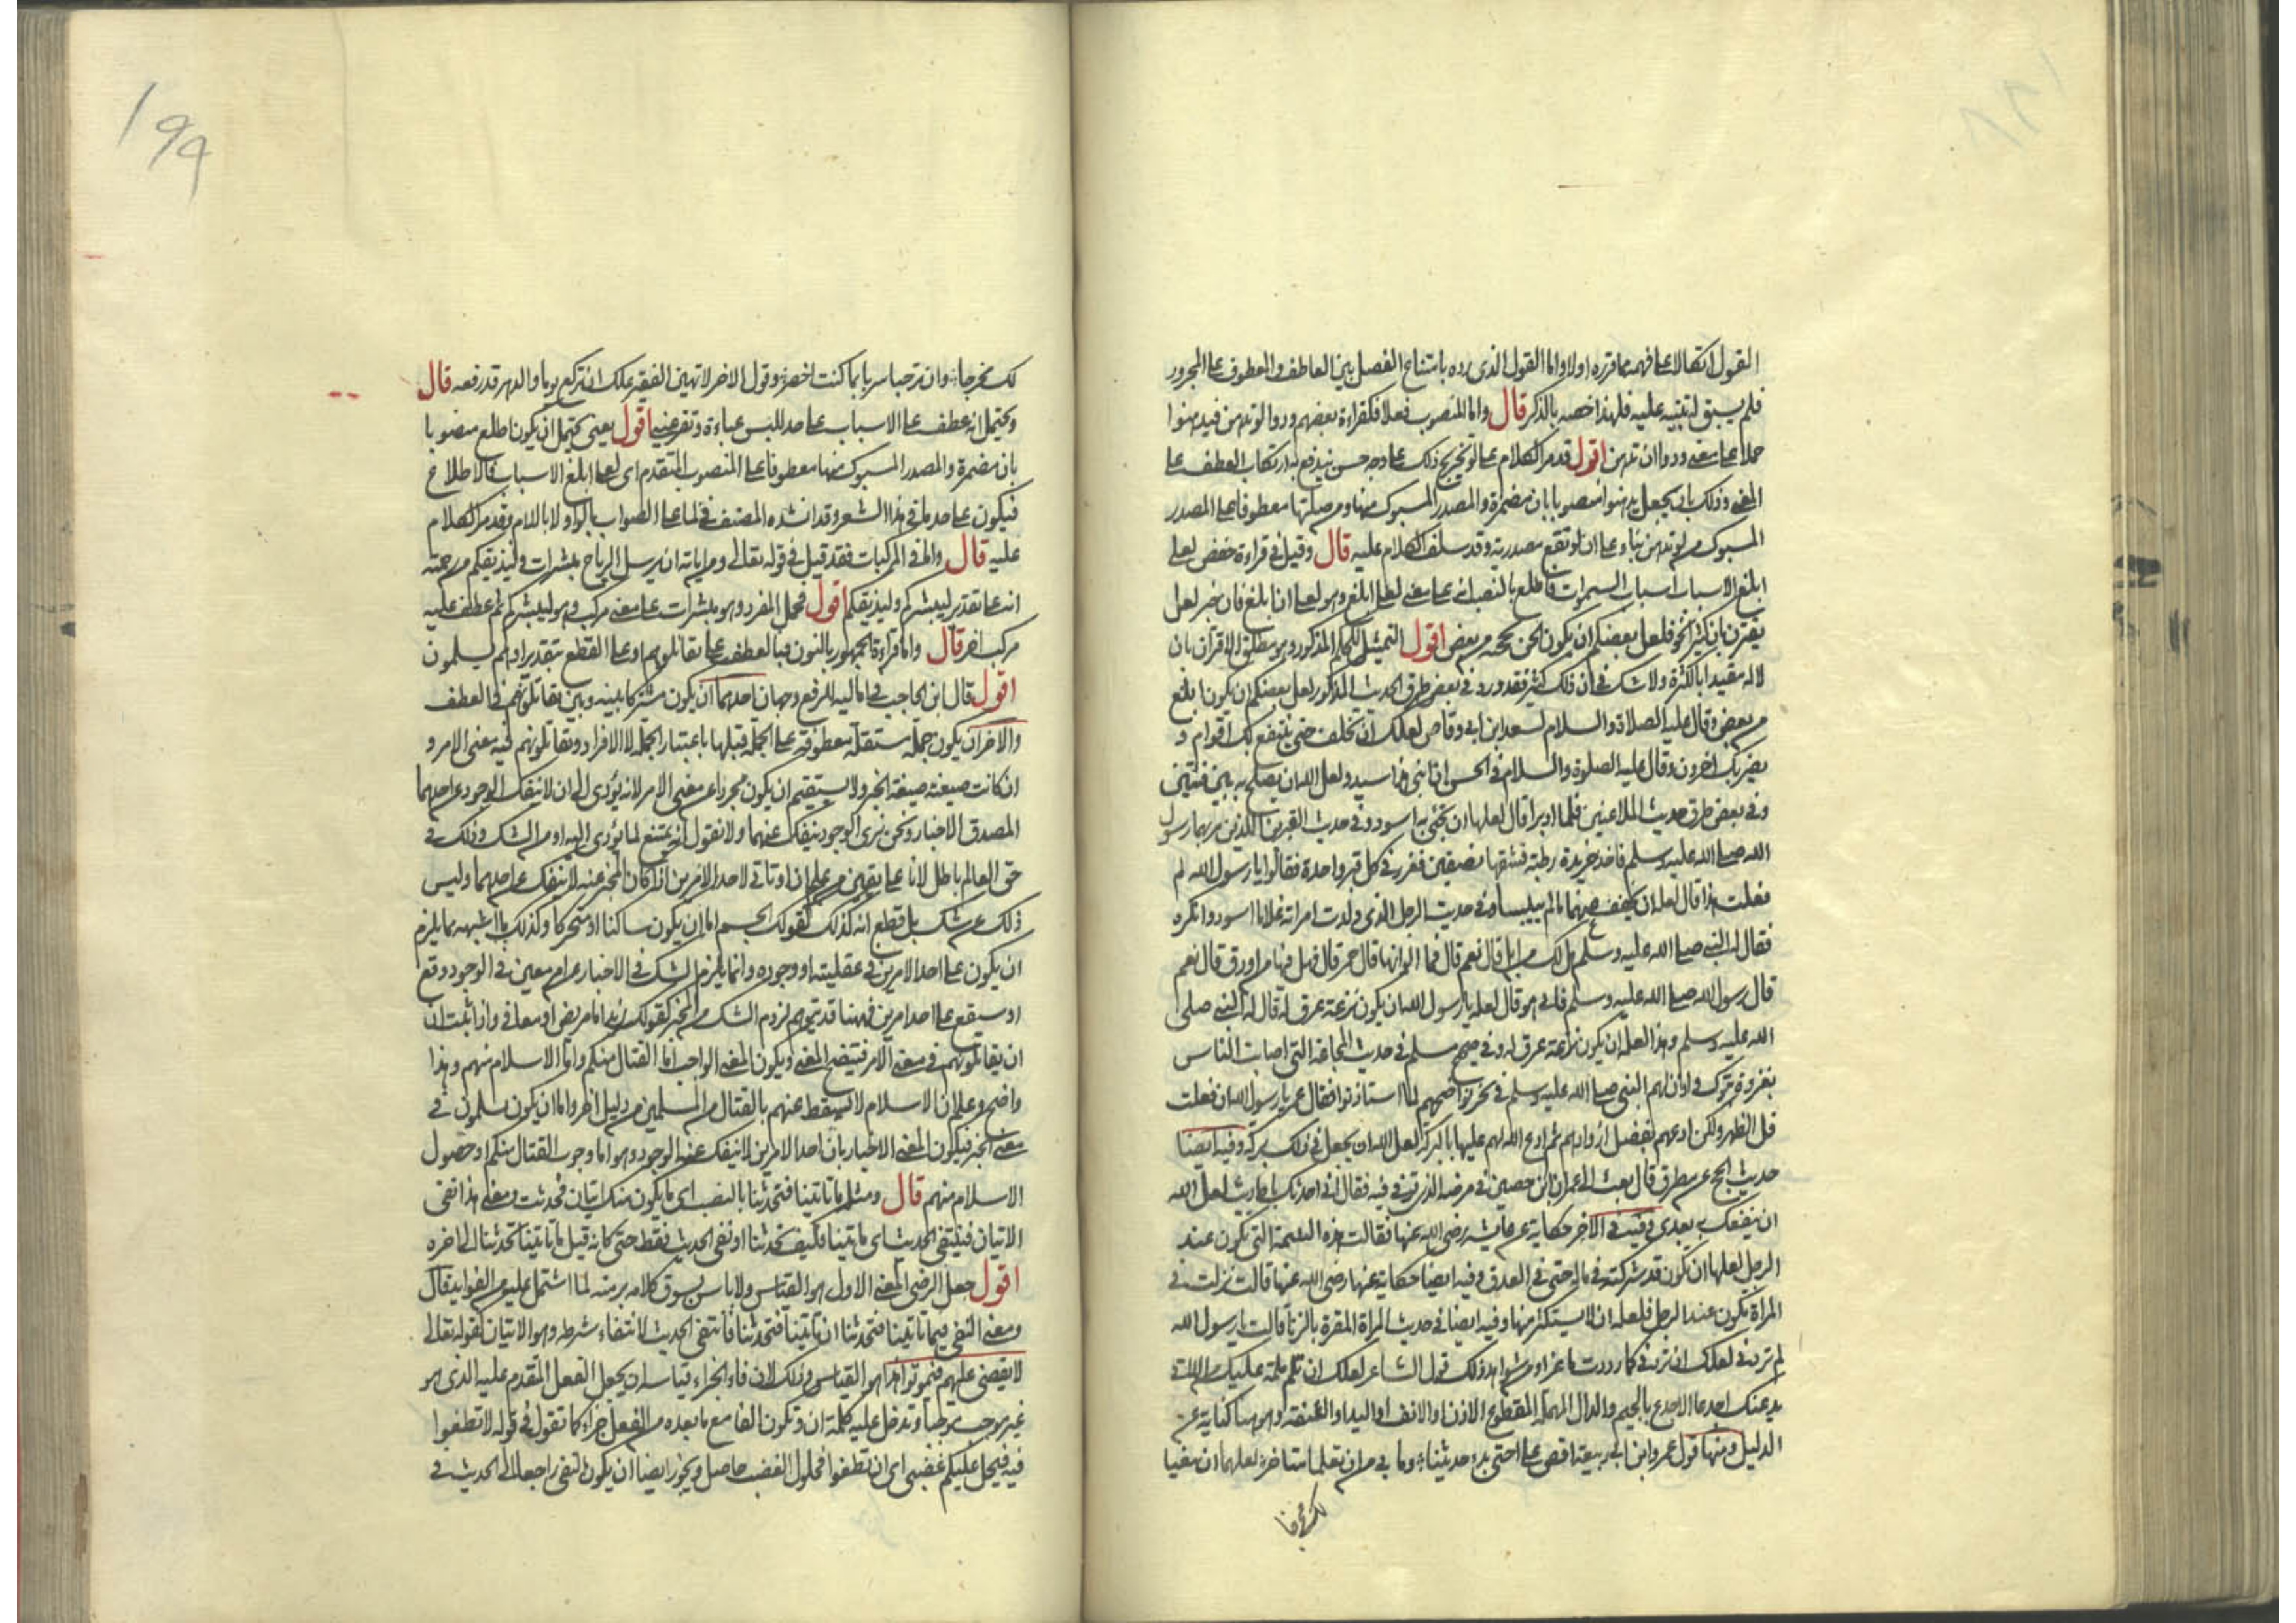 القول اتكالا على فهمه مما قرره اولا واما القول الذي رده بامتناع الفصل بين العاطف والمعطوف على المجرور
فلم يسبق له تنبيه عليه فلهذا خصه بالذكر قال واما المنصوب فعلا فكقراءة بعضهم ودوا لو تدهن فيدهنوا
حملا على معنى ودوا ان تدهن اقول قد مر الكلام على لو وتخريج ذلك على وجه حسن يندفع به ارتكاب العطف على
المعنى وذلك بان يجعل يدهنوا منصوبا بان مضمرة والمصدر المسبوك منها ومن صلتها معطوفا على المصدر
المسبوك من لو تدهن بناء على ان لو تقع مصدرية وقد سلف الكلام عليه قال وقيل في قراءة حفص لعلي
ابلغ الاسباب اسباب السموات فاطلع بالنصب انه على معنى لعلي ابلغ وهو لعلي ان ابلغ فان خبر لعل
يقترن بان كثيرا نحو فلعل بعضكم ان يكون الحن بحجته من بعض اقول التمثيل للحكم المذكور وهو مطلق الاقتران بان
لا له مقيدا بالكثرة ولا شك في ان ذلك كثير فقد ورد في بعض طرق الحديث المذكور لعل بعضكم ان يكون ابلغ
من بعض وقال عليه الصلاة والسلام لسعد ابن ابي وقاص لعلك ان تخلف حتى ينتفع بك اقوام و
يضر بك اخرون وقال عليه الصلوة والسلام في الحسن ان ابني هذا سيد ولعل الله ان يصلح به بين فئتين
وفي بعض طرق حديث الملاعنين فلما ادبرا قال لعلها ان تجئ به اسود وفي حديث القبرين اللذين مر بهما رسول
الله صلى الله عليه وسلم فاخذ جريدة رطبة فشقها نصفين فغرز في كل قبر واحدة فقالوا يا رسول الله لم
فعلت هذا قال لعله ان يخفف عنهما ما لم ييبسا وفي حديث الرجل الذي ولدت امراته غلاما اسود وانكره
فقال له النبي صلى الله عليه وسلم هل لك من ابل قال نعم قال فما الوانها قال حمر قال فهل فيها من اورق قال نعم
قال رسول الله صلى الله عليه وسلم فانى هو قال لعله يا رسول الله ان يكون نزعة عرق له قال له النبي صلى
الله عليه وسلم وهذا لعله ان يكون نزعة عرق له وفي صحيح مسلم في حديث المجاعة التي اصابت الناس
بغزوة تبوك واذن لهم النبي صلى الله عليه وسلم في نحر نواضحهم لما استاذنوا فقال عمر يا رسول الله ان فعلت
قل الظهر ولكن ادعهم بفضل ازوادهم ثم ادع الله لهم عليها بالبركة لعل الله ان يجعل في ذلك بركة وفيه ايضا
حديث الحج عن مطرف قال بعث الي عمران بن حصين في مرضه الذي توفي فيه فقال اني احدثك باحاديث لعل الله
ان ينفعك بها بعدي وفيه في الاخر حكاية عن عايشة رضي الله عنها فقالت هذه اليتيمة التي تكون عند
الرجل لعلها ان تكون قد شركته في ماله حتى في العذق وفيه ايضا حكاية عنها رضي الله عنها قالت نزلت في
المراة تكون عند الرجل فلعله ان لا يستكثر منها وفيه ايضا في حديث المراة المقرة بالزنا قالت يا رسول الله
لم تردني لعلك ان تردني كما رددت ماعزا ومن شواهد ذلك قول الشاعر لعلك ان تلم ملمة عليك من اللاتي
يدعنك اجدعا الاجدع بالجيم والدال المهملة المقطوع الاذن او الانف او اليد او الشفة وهو هنا كناية عن
الدليل ومنها قول عمرو ابن ابي ربيعة اقص على اختي بدء حديثنا وما بي من ان تعلما متاخر لعلهما ان تبغيا
لك مخرجا
199
لك مخرجا وان ترحبا سربا بما كنت احصر وقول الاخر لا تهين الفقير علك ان تركع يوما والدهر قد رفعه قال
ويحتمل انه عطف على الاسباب على حد للبس عباءة وتقر عيني اقول يعني يحتمل ان يكون اطلع منصوبا
بان مضمرة والمصدر المسبوك منها معطوفا على المنصوب المتقدم اي لعلي ابلغ الاسباب فالاطلاع
فيكون على حد ما في هذا الشعر وقد انشده المصنف في لما على الصواب بالواو لا باللام وقد مر الكلام
عليه قال واما في المركبات فقد قيل في قوله تعالى ومن اياته ان يرسل الرياح مبشرات وليذيقكم من رحمته
انه على تقدير ليبشركم وليذيقكم اقول فحمل المفرد وهو مبشرات على معنى مركب وهو ليبشركم ثم عطف عليه
مركب اخر قال واما قراءة الجمهور بالنون فبالعطف على تقاتلونهم او على القطع بتقدير او هم يسلمون
اقول قال ابن الحاجب في اماليه الرفع وجهان احدهما ان يكون مشتركا بينه وبين تقاتلونهم في العطف
والاخر ان يكون جملة مستقلة معطوفة على الجملة قبلها باعتبار الجملة لا الافراد وتقاتلونهم فيه معنى الامر و
ان كانت صيغته صيغة الخبر ولا يستقيم ان يكون مجردا عن معنى الامر لانه يؤدي الى ان لا ينفك الوجود عن احدهما
لصدق الاخبار ونحن نرى الوجود ينفك عنهما ولا نقول انه يمتنع لما يؤدي اليه او من الشك وذلك في
حق العالم باطل لانا على يقين من علم ان او تاتي لاحد الامرين اذا كان المخبر عنه لا ينفك عن احدهما وليس
ذلك عن شك بل قطع انه كذلك كقولك الجسم اما ان يكون ساكنا او متحركا وكذلك ما اشبهه مما يلزم
ان يكون على احد الامرين في عقليته او وجوده وانما يلزم الشك في الاخبار عن امر معين في الوجود وقع
او سيقع على احد امرين فههنا قد يتوهم لزوم الشك من المخبر كقولك زيد اما مريض او معافى واذا ثبت ان
ان يقاتلونهم في معنى الامر فيتضح المعنى ويكون المعنى الواجب اما القتال منكم واما الاسلام منهم وهذا
واضح وعلم ان الاسلام لا يسقط عنهم بالقتال من المسلمين من دليل اخر واما ان يكون يسلمون في
معنى الخبر فيكون المعنى الاخبار بان احد الامرين لا ينفك عنه الوجود وهو اما وجوب القتال منكم او حصول
الاسلام منهم قال ومثل ما تاتينا فتحدثنا بالنصب اي ما يكون منك اتيان فحديث ومعنى هذا نفى
الاتيان فينتفي الحديث اي ما تاتينا فكيف تحدثنا او نفي الحديث فقط حتى كانه قيل ما تاتينا محدثنا الى اخره
اقول جعل الرضي المعنى الاول هو القياس ولا باس بسوق كلامه برمته لما اشتمل عليه من الفوايد قال
ومعنى النفي في ما تاتينا فتحدثنا ان تاتينا فتحدثنا فانتفى الحديث لانتفاء شرطه وهو الاتيان كقوله تعالى
لا يقضى عليهم فيموتوا هذا هو القياس وذلك لان فاء الجزاء قياسه ان يجعل الفعل المقدم عليه الذي هو
غير موجب موجبا وتدخل عليه كلمة ان وتكون الفا مع ما بعده من الفعل جزاء كما تقول في قوله لا تطغوا
فيه فيحل عليكم غضبي اي ان تطغوا فحلول الغضب حاصل ويجوز ايضا ان يكون النفي راجعا الى الحديث في